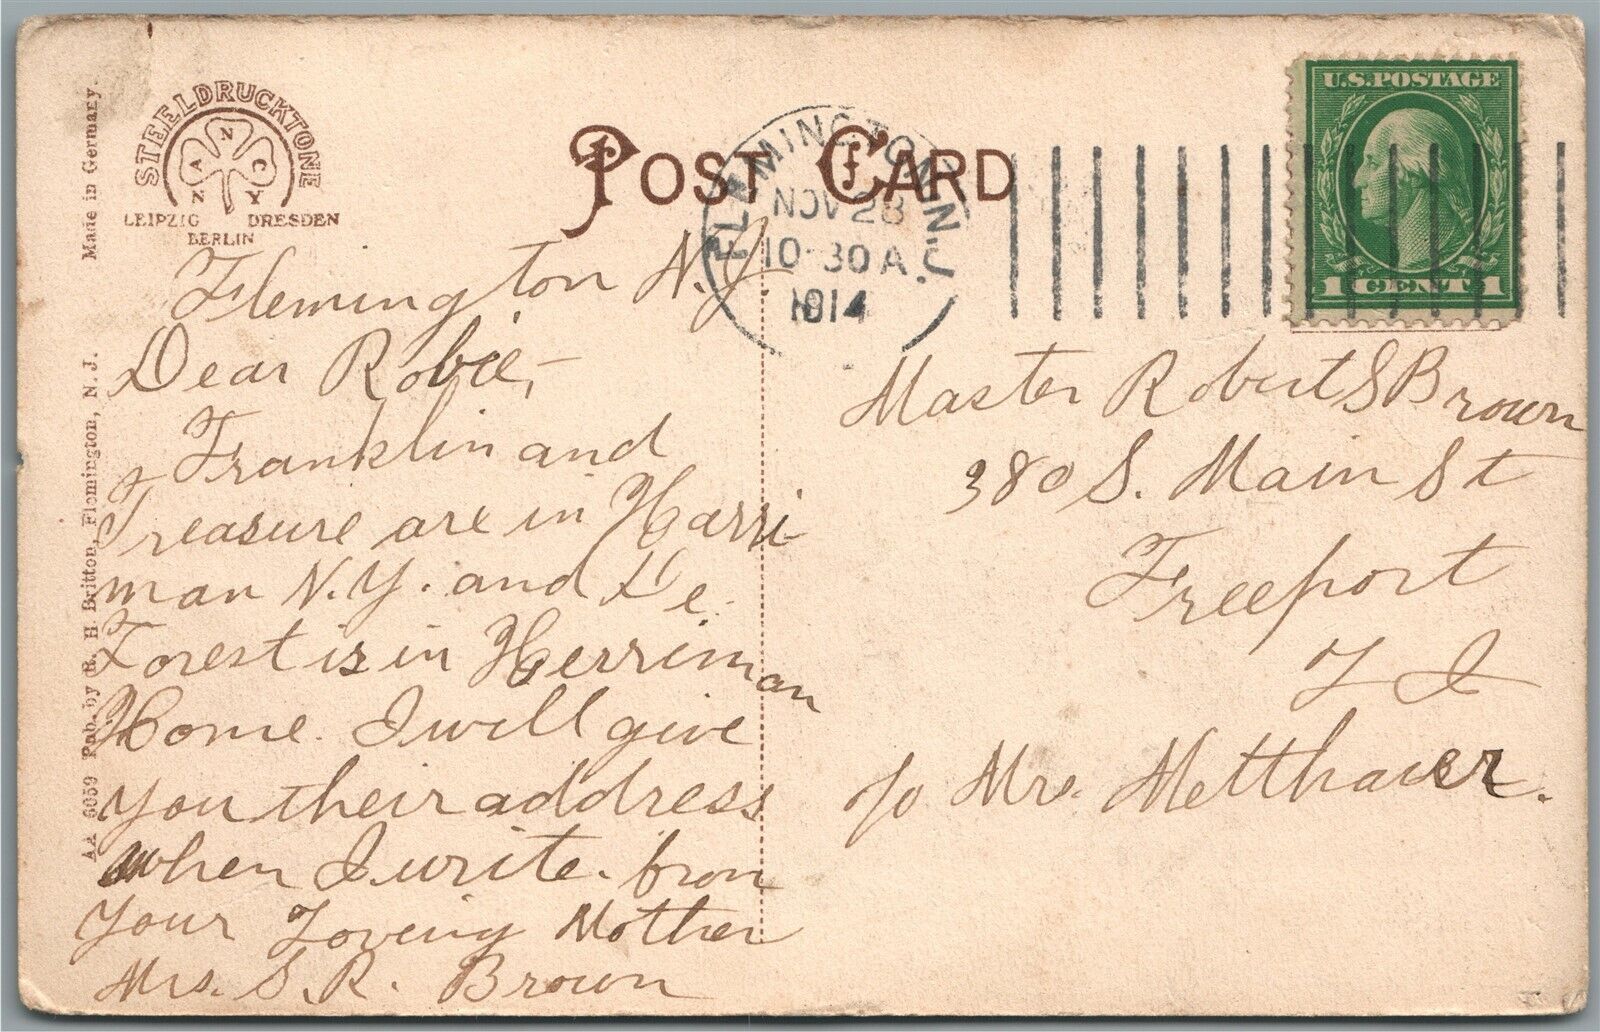 STEELDRUCKTONE
NANCY
LEIPZIG DRESDEN
BERLIN
POST CARD
FLEMINGTON, N.J.
NOV 28
10-30 A
1914
U.S. POSTAGE
1 CENT 1
AA 6059 Pub. by R. H Britton, Flemington, N. J. Made in Germany.
Flemington N.J.
Dear Robie,-
Franklin and
Treasure are in Harri-
man N.Y. and De
Forest is in Herriman
Home. I will give
you their address
when I write. from
Your Loving Mother
Mrs. S. R. Brown
Master Robert S Brown
380 S. Main St
Freeport
L I
c/o Mrs. Metthauer.